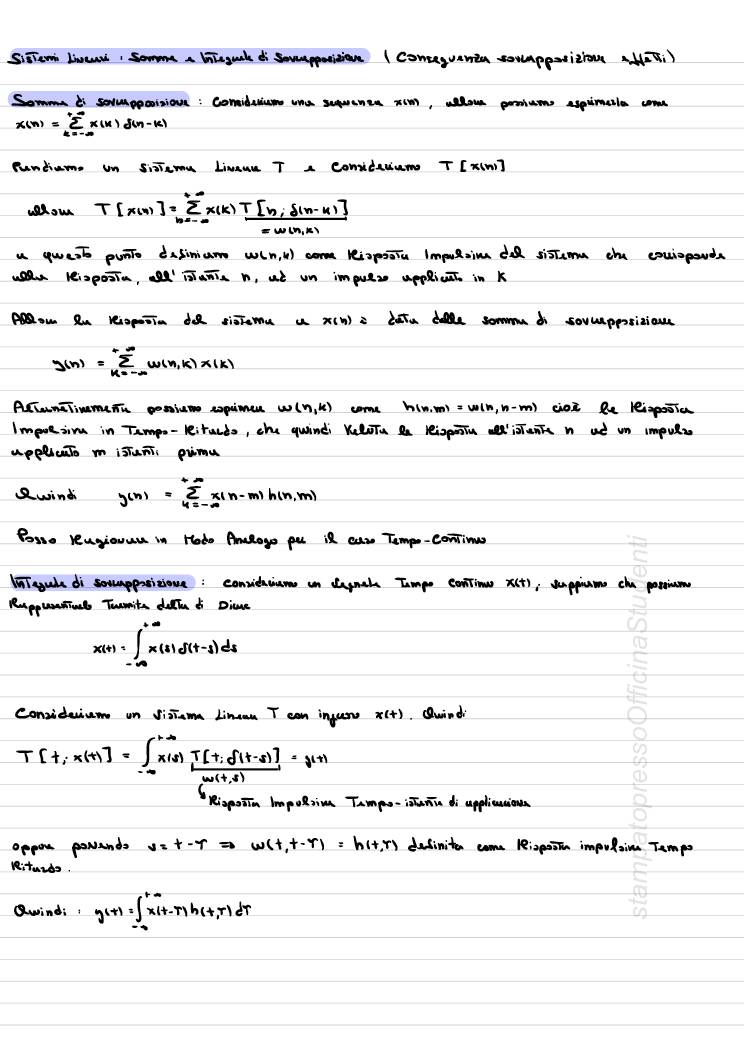 Sistemi Lineari : Somma e Integrale di Sovrapposizione ( Conseguenza sovrapposizione effetti)
Somma di sovrapposizione : Consideriamo una sequenza x(n) , allora possiamo esprimerla come
x(n) = Σ_{k=-∞}^{+∞} x(k) δ(n-k)
Prendiamo un sistema Lineare T e Consideriamo T[x(n)]
allora T[x(n)] = Σ_{k=-∞}^{+∞} x(k) T[n; δ(n-k)]
= w(n,k)
a questo punto definiamo w(n,k) come Risposta Impulsiva del sistema che corrisponde
alla Risposta, all'istante n, ad un impulso applicato in K
Allora la Risposta del sistema a x(n) è data dalla somma di sovrapposizione
y(n) = Σ_{k=-∞}^{+∞} w(n,k) x(k)
Alternativamente possiamo esprimere w(n,k) come h(n,m) = w(n,n-m) cioè la Risposta
Impulsiva in Tempo-Ritardo, che quindi Valuta la Risposta all'istante n ad un impulso
applicato m istanti prima
Quindi y(n) = Σ_{k=-∞}^{+∞} x(n-m) h(n,m)
Posso Ragionare in Modo Analogo per il caso Tempo-Continuo
Integrale di sovrapposizione : consideriamo un segnale Tempo Continuo x(t), sappiamo che possiamo
Rappresentarlo Tramite delta di Dirac
x(t) = ∫_{-∞}^{+∞} x(s) δ(t-s) ds
Consideriamo un sistema Lineare T con ingresso x(t). Quindi
T[t; x(t)] = ∫_{-∞}^{+∞} x(s) T[t; δ(t-s)] = y(t)
w(t,s)
Risposta Impulsiva Tempo-istante di applicazione
oppure ponendo s = t-τ ⇒ w(t,t-τ) = h(t,τ) definita come Risposta impulsiva Tempo
Ritardo.
Quindi : y(t) = ∫_{-∞}^{+∞} x(t-τ) h(t,τ) dτ
stampatopressoOfficinaStudenti